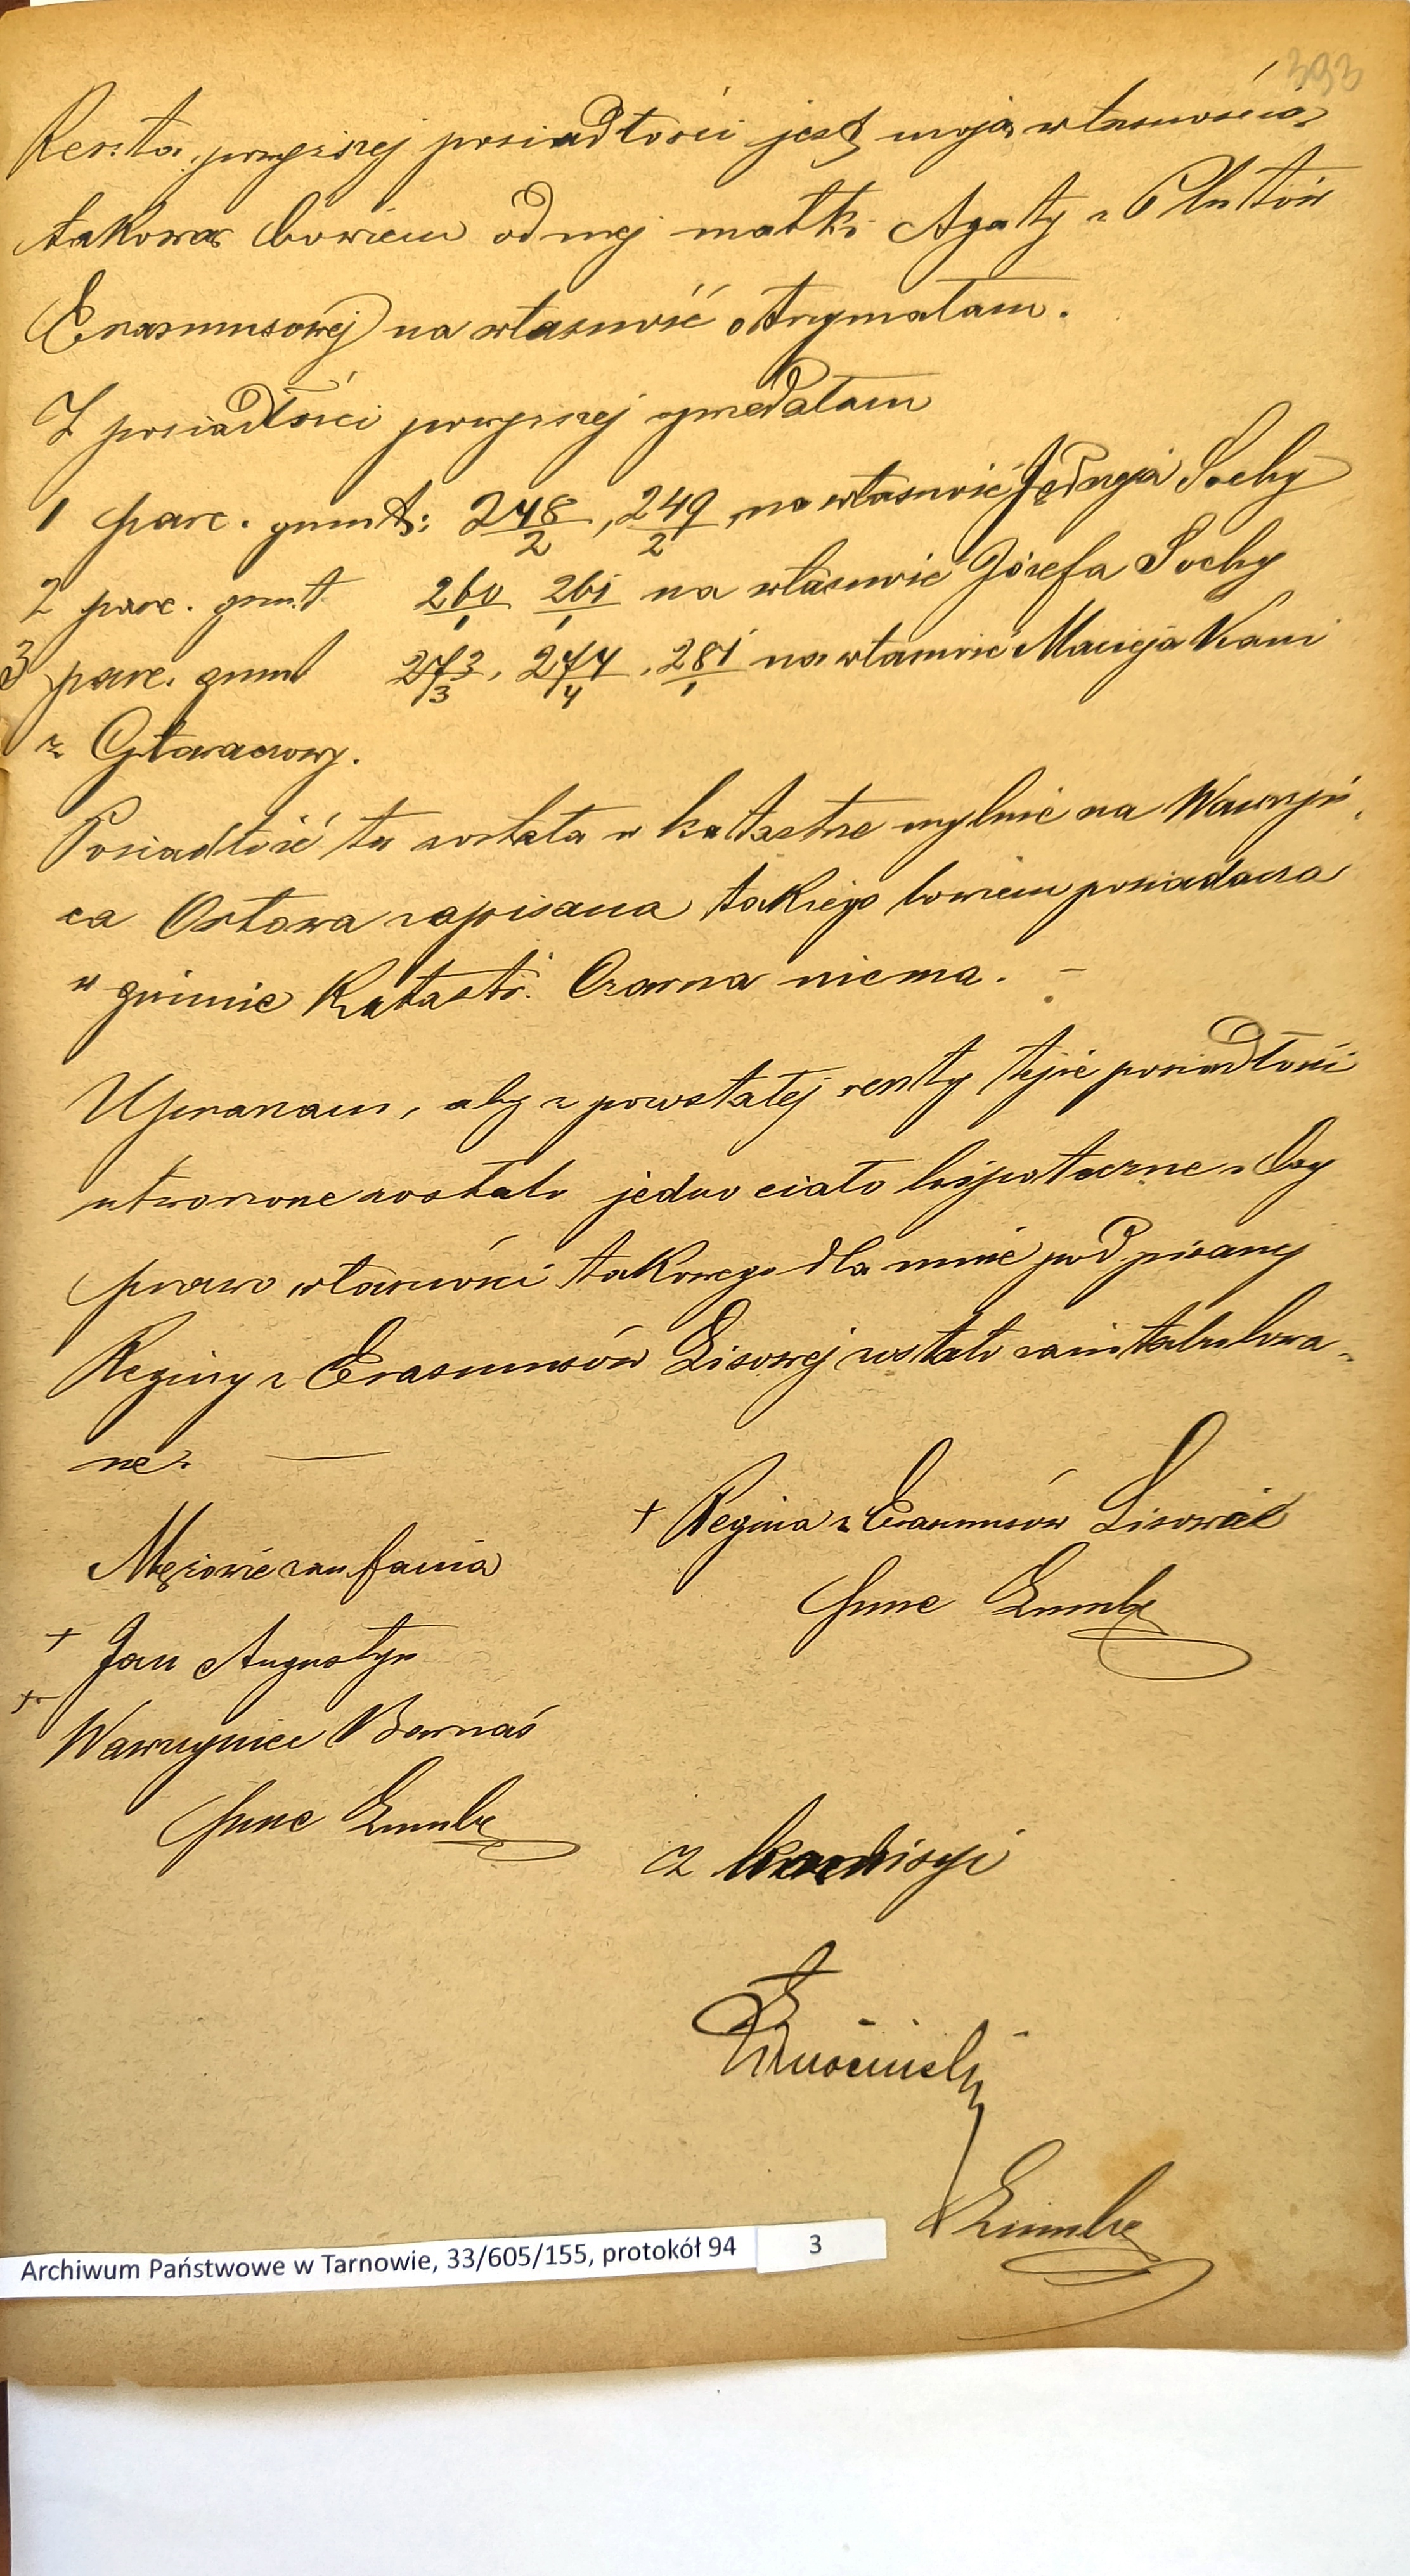 393
Reszta powyższej posiadłości jest moją własnością
takową bowiem od mej matki Agaty z Plutów
Erasmusowej na własność otrzymałam.
Z posiadłości powyższej sprzedałam
1 parc. grunt: 248/2, 249/2 na własność Jędrzeja Sochy
2 parc. grunt 260/1 261/1 na własność Józefa Sochy
3 parc. grunt 273/3, 274/4, 281/1 na własność Macieja Kani
z Głowaczowy.
Posiadłość ta została w katastrze mylnie na Wawrzyń
ca Ostowa zapisana takiego bowiem posiadacza
w gminie Katastr. Czarna niema. –
Upraszam, aby z powstałej reszty tejże posiadłości
utworzone zostało jedno ciało hipoteczne a by
prawo własności takowego dla mnie podpisanej
Reginy z Erasmusów Lisowej zostało zaintabulowa-
ne. —
+ Regina z Erasmusów Lisowa
Mężowie zaufania
+ Jan Augustyn
+ Wawrzyniec Barnaś
Z komisyi
Archiwum Państwowe w Tarnowie, 33/605/155, protokół 94 3